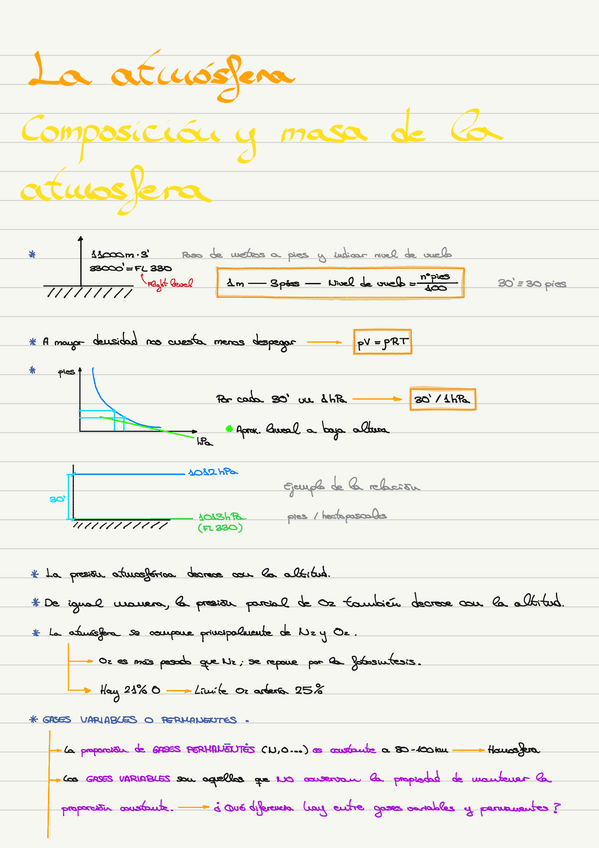 La atmósfera
Composición y masa de la
atmosfera
* 11000m·3'
33000' = FL 330
Flight level
Paso de metros a pies y indicar nivel de vuelo
1m — 3pies — Nivel de vuelo = nºpies / 100
30' = 30 pies
* A mayor densidad nos cuesta menos despegar → pV = ρRT
* pies
hPa
Por cada 30' un 1hPa → 30' / 1hPa
Aprox. lineal a baja altura
1012 hPa
30'
1013hPa
(FL 330)
Ejemplo de la relación
pies / hectopascales
* La presión atmosférica decrece con la altitud.
* De igual manera, la presión parcial de O2 también decrece con la altitud.
* La atmósfera se compone principalmente de N2 y O2.
→ O2 es más pesado que N2; se repone por la fotosíntesis.
→ Hay 21% O → Límite O2 ardería 25%
* GASES VARIABLES O PERMANENTES.
→ La proporción de GASES PERMANENTES (N,O...) es constante a 80-100km → Homosfera
→ Los GASES VARIABLES son aquellos que NO conservan la propiedad de mantener la
proporción constante. → ¿Qué diferencia hay entre gases variables y permanentes?